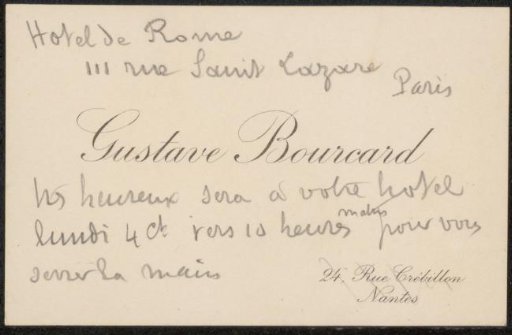 Hotel de Rome
111 rue Saint Lazare
Paris
Gustave Bourcard
très heureux sera à votre hotel
lundi 4 ct vers 10 heures matin pour vous
serrer la main
24, Rue Crébillon
Nantes